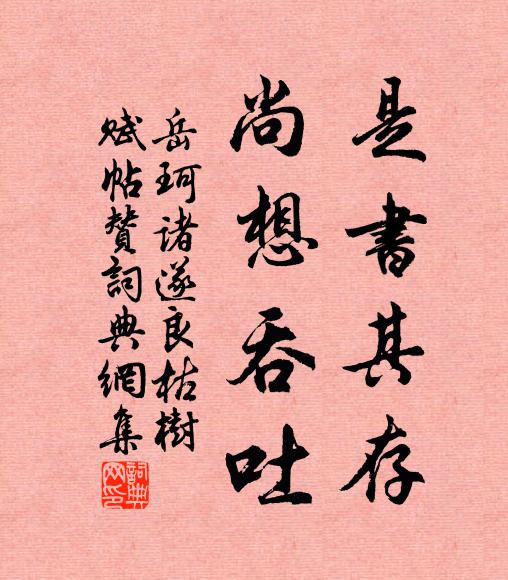 是書其存
尚想吞吐
岳珂諸遂良枯樹
賦帖贊詞典網集
詞典网印